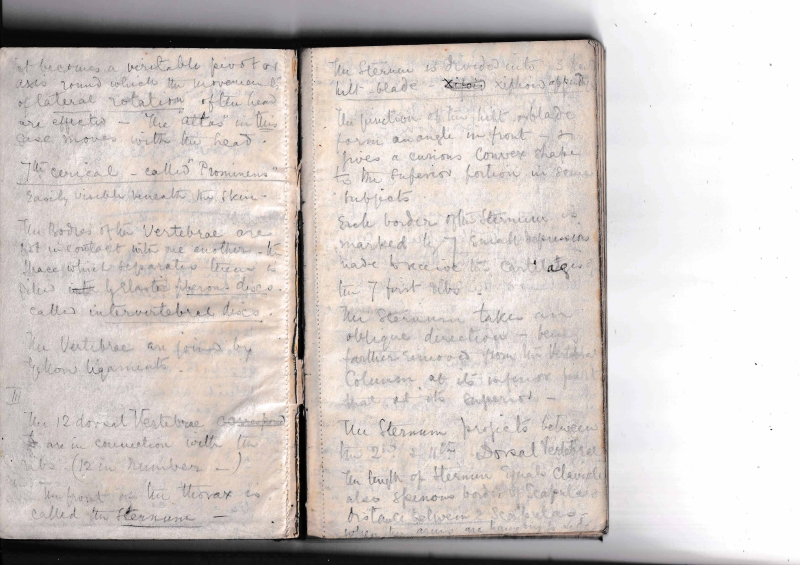 it becomes a veritable pivot or
axis round which the movements
of lateral rotation of the head
are effected — The "atlas" in this
case moves with the head.
7th cerical — called "Prominens"
Easily visible beneath the skin.
The Bodies of the Vertebrae are
not in contact with one another — the
space which separates them is
filled into by elastic fiberous discs.
called intervertebral discs.
The Vertebrae are joined by
yellow ligaments.
III
The 12 dorsal Vertebrae correspond
to are in connection with the
ribs (12 in number —)
The front of the thorax is
called the Sternum —
The Sternum is divided into 3
hilt — blade — Xifoid Xiphoid
The junction of the hilt & blade
form an angle in front — &
gives a curious Convex shape
to the superior portion in some
subjects
Each border of the Sternum is
marked by 7 small depressions
made to receive the cartilages of
the 7 first ribs
The Sternum takes an
oblique direction — being
farther removed from the Vertebral
Column at its inferior part
than at its superior —
The Sternum projects between
the 2nd & 11th Dorsal Vertebrae
The length of Sternum Equals Clavicle
also spinous border of Scapulas &
distance between 2 Scapulas —
when the arms are hanging